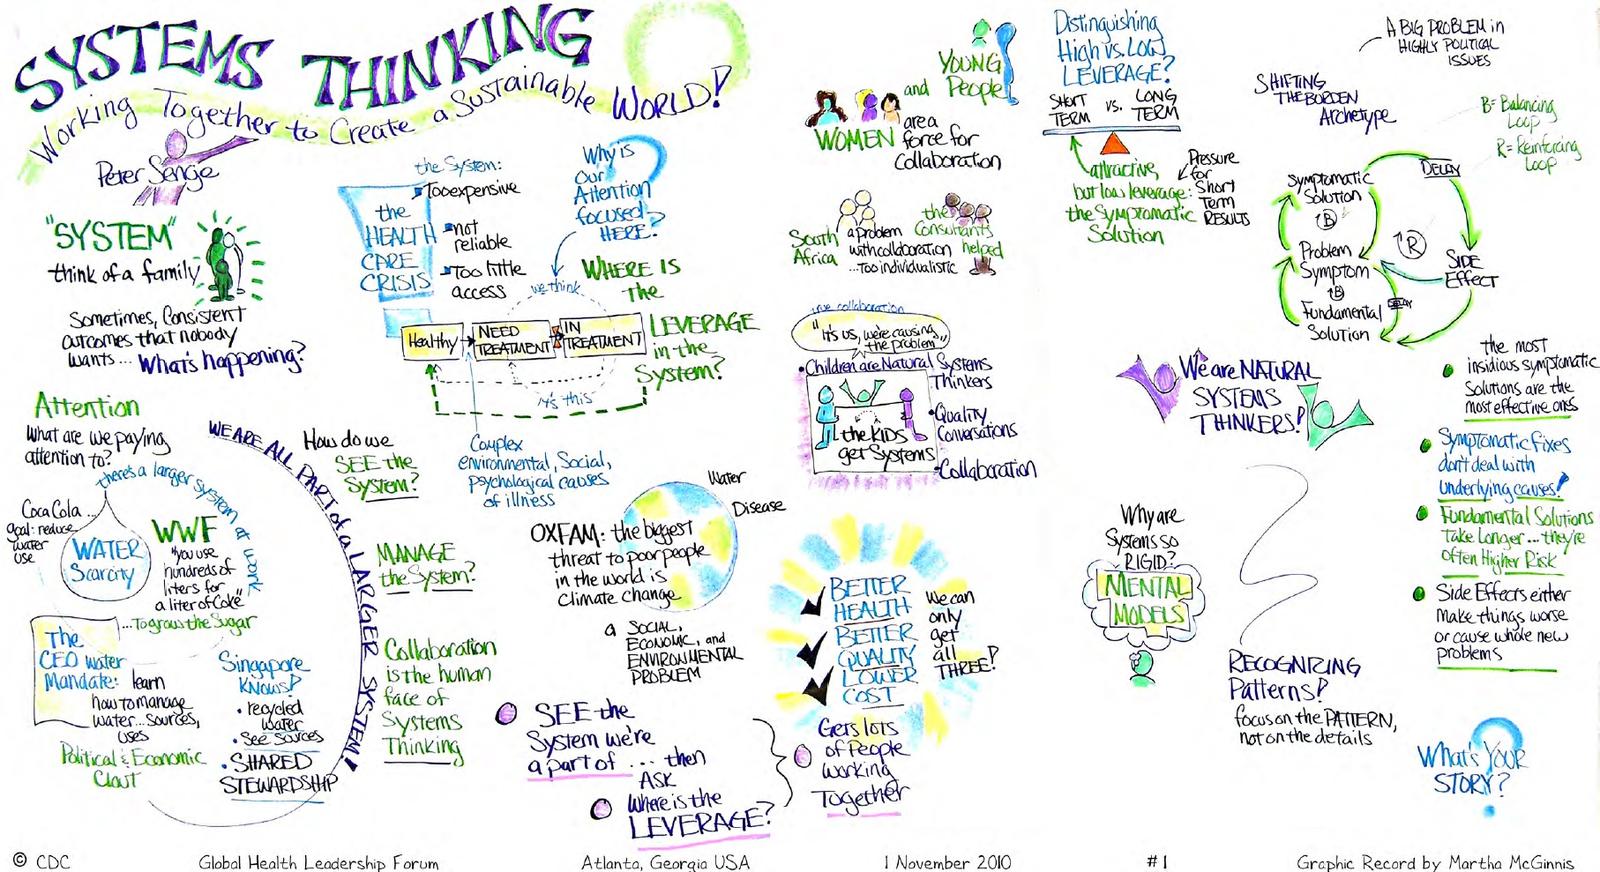 SYSTEMS THINKING
Working Together to Create a Sustainable WORLD!
Peter Senge
"SYSTEM"
think of a family
Sometimes, Consistent
outcomes that nobody
wants... What's happening?
the System:
Too expensive
not
reliable
Too little
access
the
HEALTH
CARE
CRISIS
Why is
our
Attention
focused
HERE?
we think
WHERE IS
the
LEVERAGE
in the
System?
Healthy
NEED
TREATMENT
IN
TREATMENT
it's this
Complex
environmental, Social,
psychological causes
of illness
Attention
What are we paying
attention to?
there's a larger system at work
Coca Cola...
goal: reduce
water
use
WATER
Scarcity
WWF
"you use
hundreds of
liters for
a liter of Coke"
...To grow the Sugar
The
CEO Water
Mandate: learn
how to manage
water... sources,
uses
Political & Economic
Clout
Singapore
KNOWS!
• recycled
water
• See Sources
• SHARED
STEWARDSHIP
WE ARE ALL PART of a LARGER SYSTEM!
How do we
SEE the
System?
MANAGE
the System?
Collaboration
is the human
face of
Systems
Thinking
OXFAM: the biggest
threat to poor people
in the world is
Climate change
Water
Disease
a SOCIAL,
ECONOMIC, and
ENVIRONMENTAL
PROBLEM
SEE the
System we're
a part of ... then
ASK
Where is the
LEVERAGE?
BETTER
HEALTH
BETTER
QUALITY
LOWER
COST
We can
only
get
all
THREE!
Gets lots
of People
working
Together
YOUNG
and People
WOMEN are a
force for
Collaboration
South
Africa
a problem
with collaboration
...too individualistic
the
Consultants
helped
true collaboration
"It's us, we're causing
the problem"
• Children are Natural Systems
Thinkers
• Quality
Conversations
• Collaboration
the KIDS
get Systems
Distinguishing
High vs. LOW
LEVERAGE?
SHORT
TERM
vs.
LONG
TERM
attractive,
but low leverage:
the Symptomatic
Solution
Pressure
for
Short
Term
RESULTS
A BIG PROBLEM in
HIGHLY POLITICAL
ISSUES
SHIFTING
THE BURDEN
Archetype
B = Balancing
Loop
R = Reinforcing
Loop
Symptomatic
Solution
B
DELAY
R
Problem
Symptom
SIDE
EFFECT
B
DELAY
Fundamental
Solution
We are NATURAL
SYSTEMS
THINKERS!
the most
insidious symptomatic
Solutions are the
most effective ones
Symptomatic fixes
don't deal with
underlying causes!
Fundamental Solutions
take longer... they're
often Higher Risk
Side Effects either
make things worse
or cause whole new
problems
Why are
Systems so
RIGID?
MENTAL
MODELS
RECOGNIZING
Patterns!
focus on the PATTERN,
not on the details
What's YOUR
STORY?
© CDC Global Health Leadership Forum Atlanta, Georgia USA 1 November 2010 #1 Graphic Record by Martha McGinnis